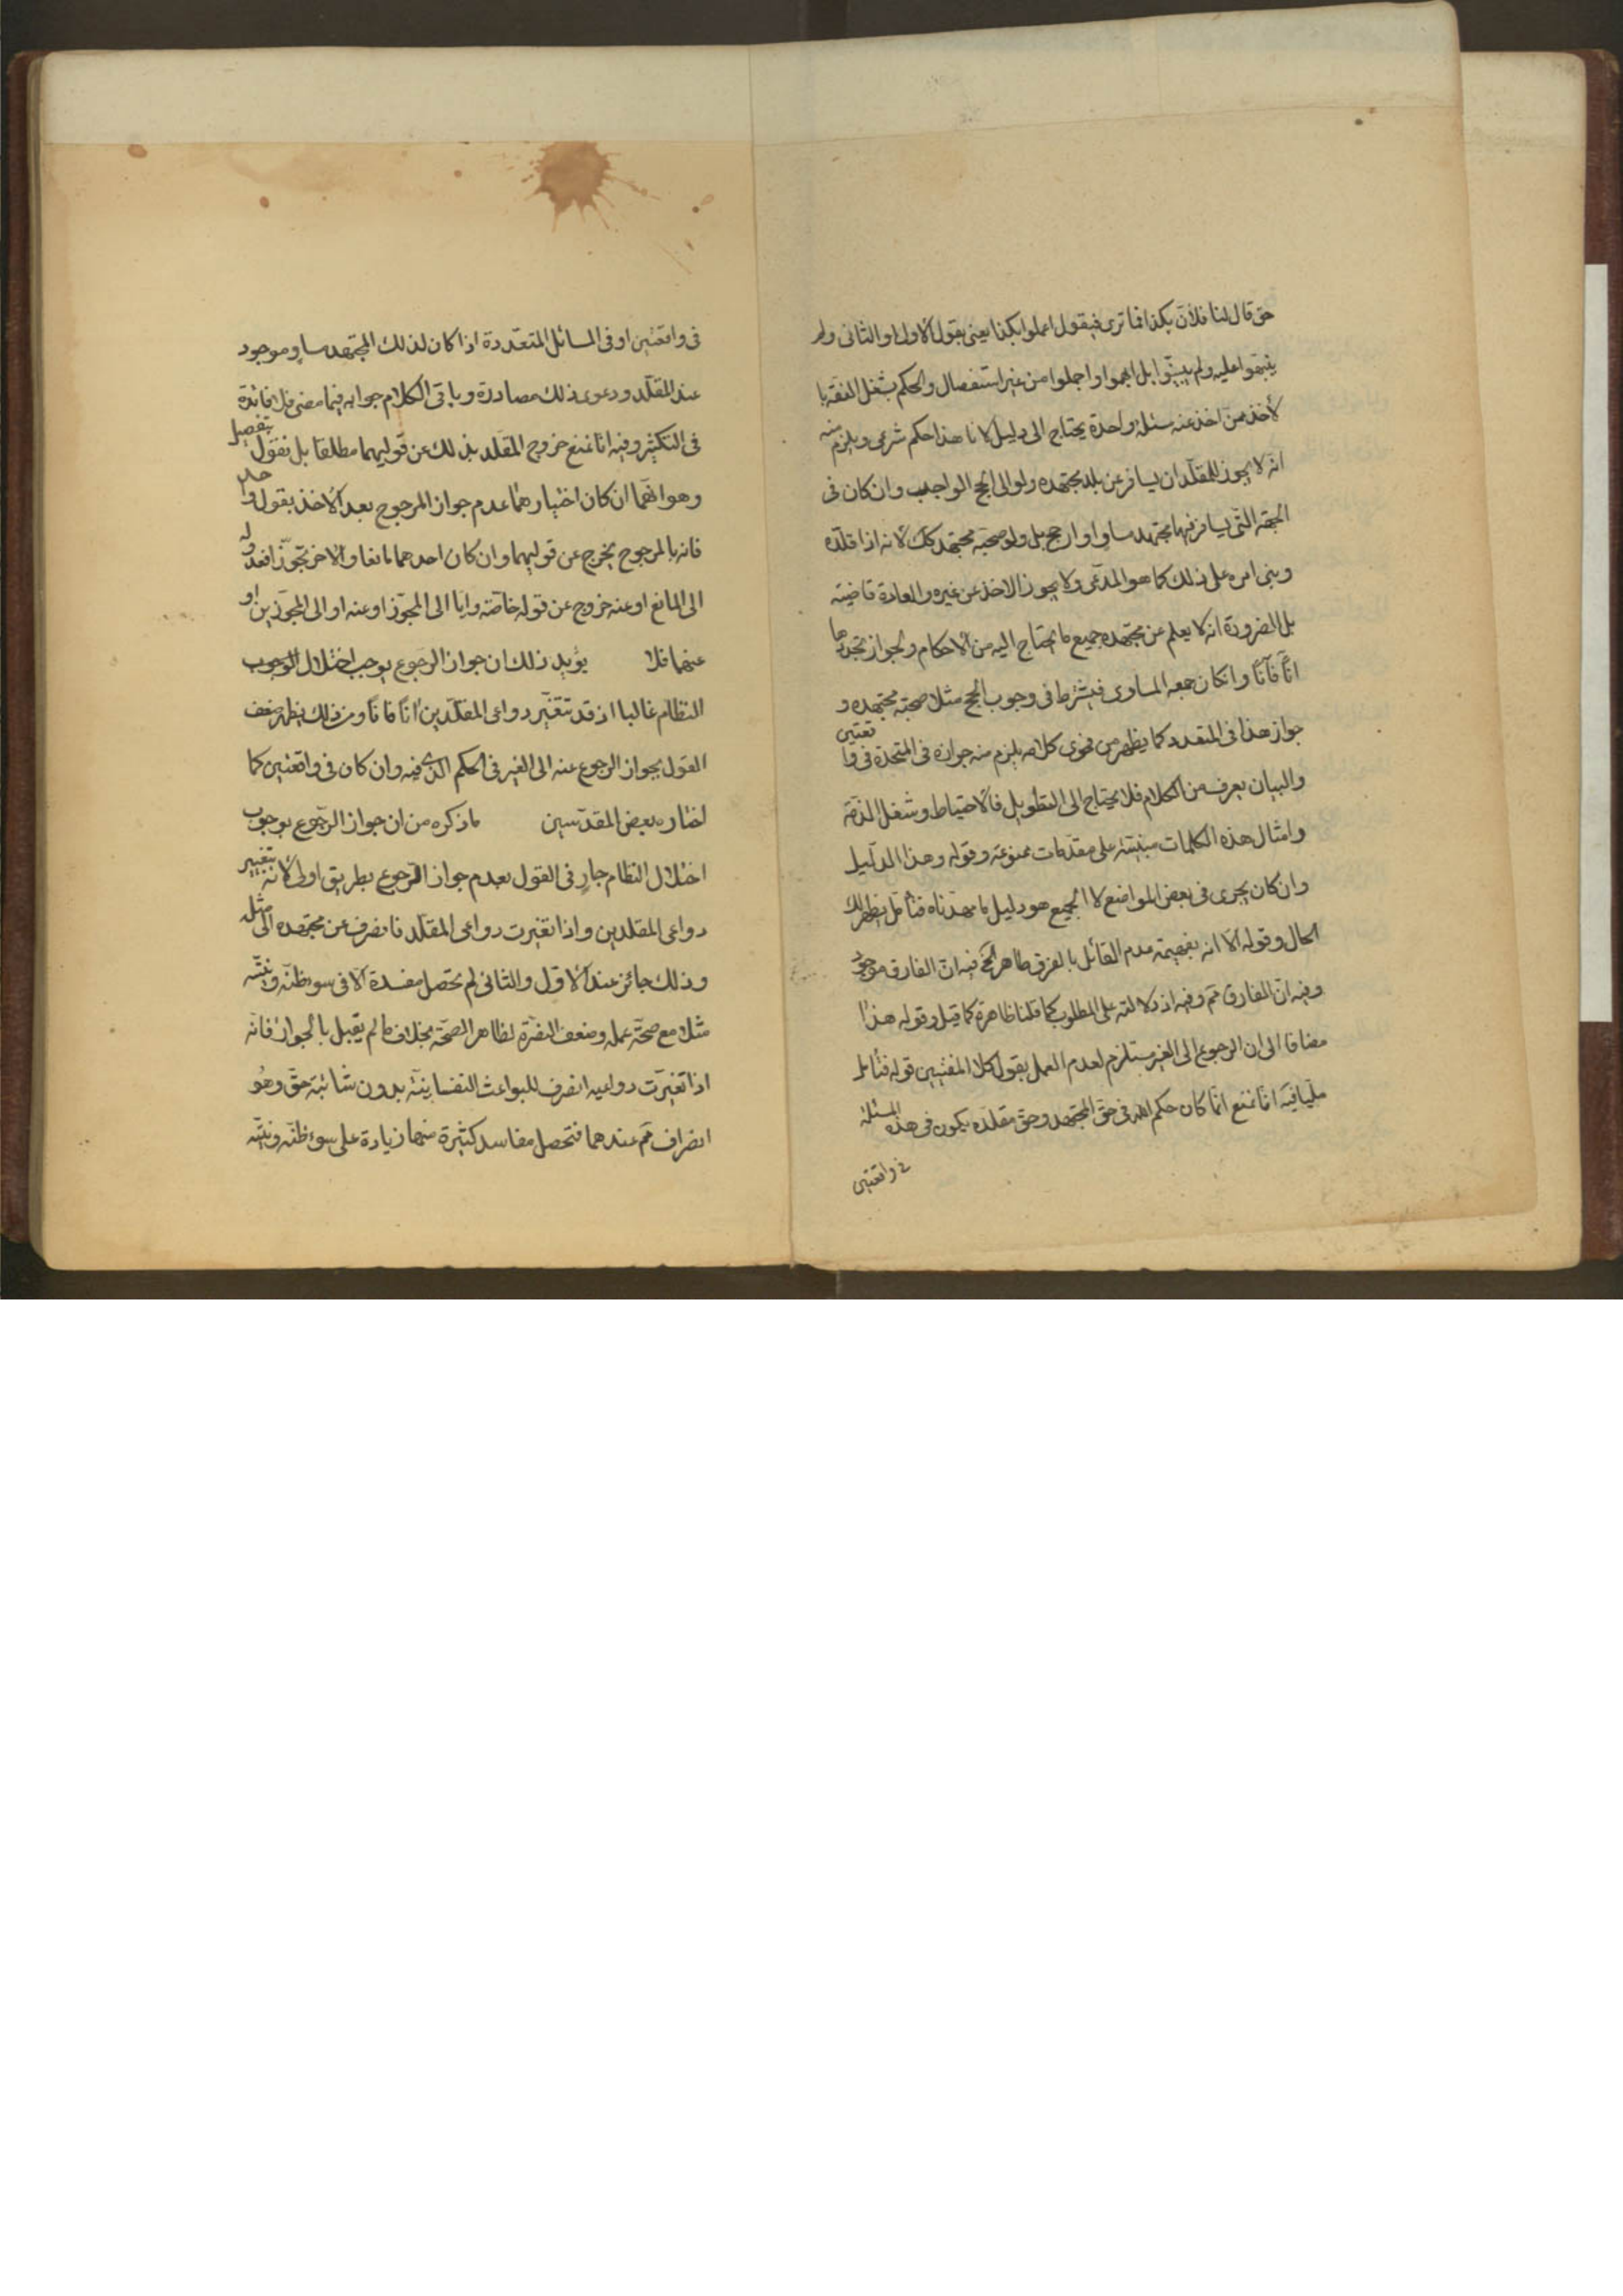 حتى قال لنا فلان بكذا فما ترى فيقول اعملوا بكذا يعنى بقول الاول او الثانى ولم
ينبّهوا عليه ولم يبيّنوا بل ابهموا واجملوا من غير استفصال والحكم بشغل الفقه با
لأخذ ممن اخذ عنه مسئلة واحدة يحتاج الى دليل لانا هذا حكم شرعى ويلزم منه
انه لا يجوز للمقلّد ان يسافر عن بلد مجتهده ولو الى الحج الواجب وان كان فى
الجهة التى يسافر فيها مجتهد مساو او ارجح بل ولو صحبه مجتهد كك لأنه اذا قلّده
وبنى امره على ذلك كما هو المدّعى ولا يجوز الاخذ عن غيره والعادة قاضية
بل الضرورة انه لا يعلم عن مجتهده جميع ما يحتاج اليه من الأحكام ولجواز تجددها
انًا فآنًا وانكان معه المساوى فيشترط فى وجوب الحج مثلا صحبة مجتهده و
جواز هذا فى المتعدد كما يظهر من فحوى كلامه يلزم منه جوازه فى المتحدة فى واقعتين
والبيان يعرف من الكلام فلا يحتاج الى التطويل فالاحتياط وشغل الذمة
وامثال هذه الكلمات مبنيّته على مقدمات ممنوعة وقوله وهذا الدليل
وان كان يجرى فى بعض المواضع لا الجميع هو دليل ما مهدناه فتأمل يظهر لك
الحال وقوله الا انه بضميمة عدم القائل بالفرق ظاهر الخ فيه ان الفارق موجود
وفيه ان المفارق ثم وفيه اذ دلالته على المطلوب كما قلنا ظاهرة كما قيل وقوله هذا
مضافا الى ان الرجوع الى الغير مستلزم لعدم العمل بقول كلا المفتيين قوله فتأمل
مليا فيه انا نمنع انما كان حكم الله فى حق المجتهد وحق مقلده يكون فى هذه المسئلة
فى واقعتين
فى واقعتين او فى المسائل المتعدّدة اذا كان لذلك المجتهد مساو موجود
عند المقلّد ودعوى ذلك مصادرة وباقى الكلام جوابه فيما مضى فلا فائدة
فى التكثير وفيه انا نمنع خروج المقلد بذلك عن قوليهما مطلقا بل نقول بتفصيل
وهو انهما ان كان اختيارهما عدم جواز المرجوح بعد الأخذ بقول واحد
فانه بالمرجوح يخرج عن قوليهما وان كان احدهما مانعا والاخر مجوّزا فعدوله
الى المانع او عنه خروج عن قوله خاصّة واما الى المجوّز او عنه او الى المجوّزين او
عنهما فلا يؤيد ذلك ان جواز الرجوع يوجب اختلال الوجوب
النظام غالبا اذ قد تتغيّر دواعى المقلّدين انًا فانًا ومن ذلك يظهر ضعف
القول بجواز الرجوع عنه الى الغير فى الحكم الذى فيه وان كان فى واقعتين كما
اختاره بعض المقدّسين ما ذكره من ان جواز الرجوع يوجب
اختلال النظام جارٍ فى القول بعدم جواز الرجوع بطريق اولى لأنه بتغيير
دواعى المقلدين واذا تغيرت دواعى المقلّد فانصرف عن مجتهده الى مثله
وذلك جائز عند الأول والثانى لم تحصل مفسدة الا فى سوء ظنّه ونيّته
مثلا مع صحّة عمله وضعف النفرة لظاهر الصحّة بخلاف ما لم يقبل بالجواز فانه
اذا تغيّرت دواعيه انصرف للبواعث النفسانيّة بدون شائبة حق وهو
انصراف ثم عندهما فتحصل مفاسد كثيرة منها زيادة على سوء ظنّه ونيّته